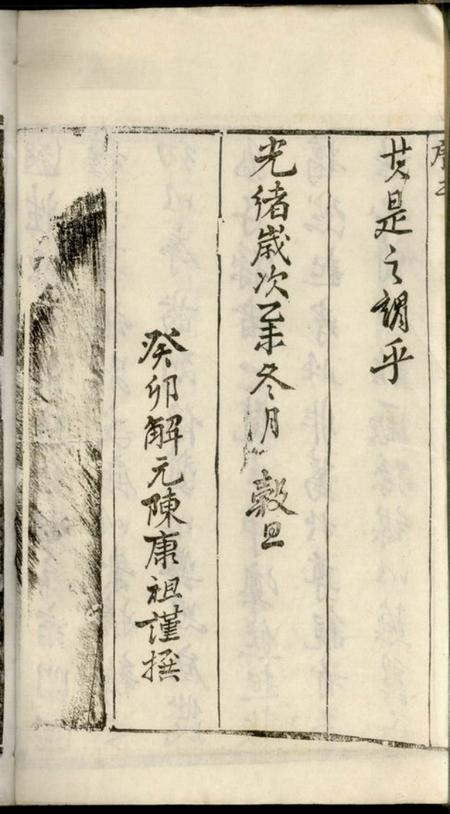 其是之謂乎
光緒歲次乙未冬月 穀旦
癸卯解元陳康祖謹撰